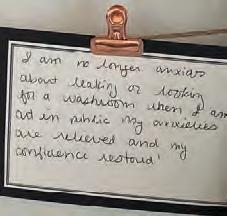 I am no longer anxious
about leaking or looking
for a washroom when I am
out in public my anxieties
are relieved and my
confidence restored!